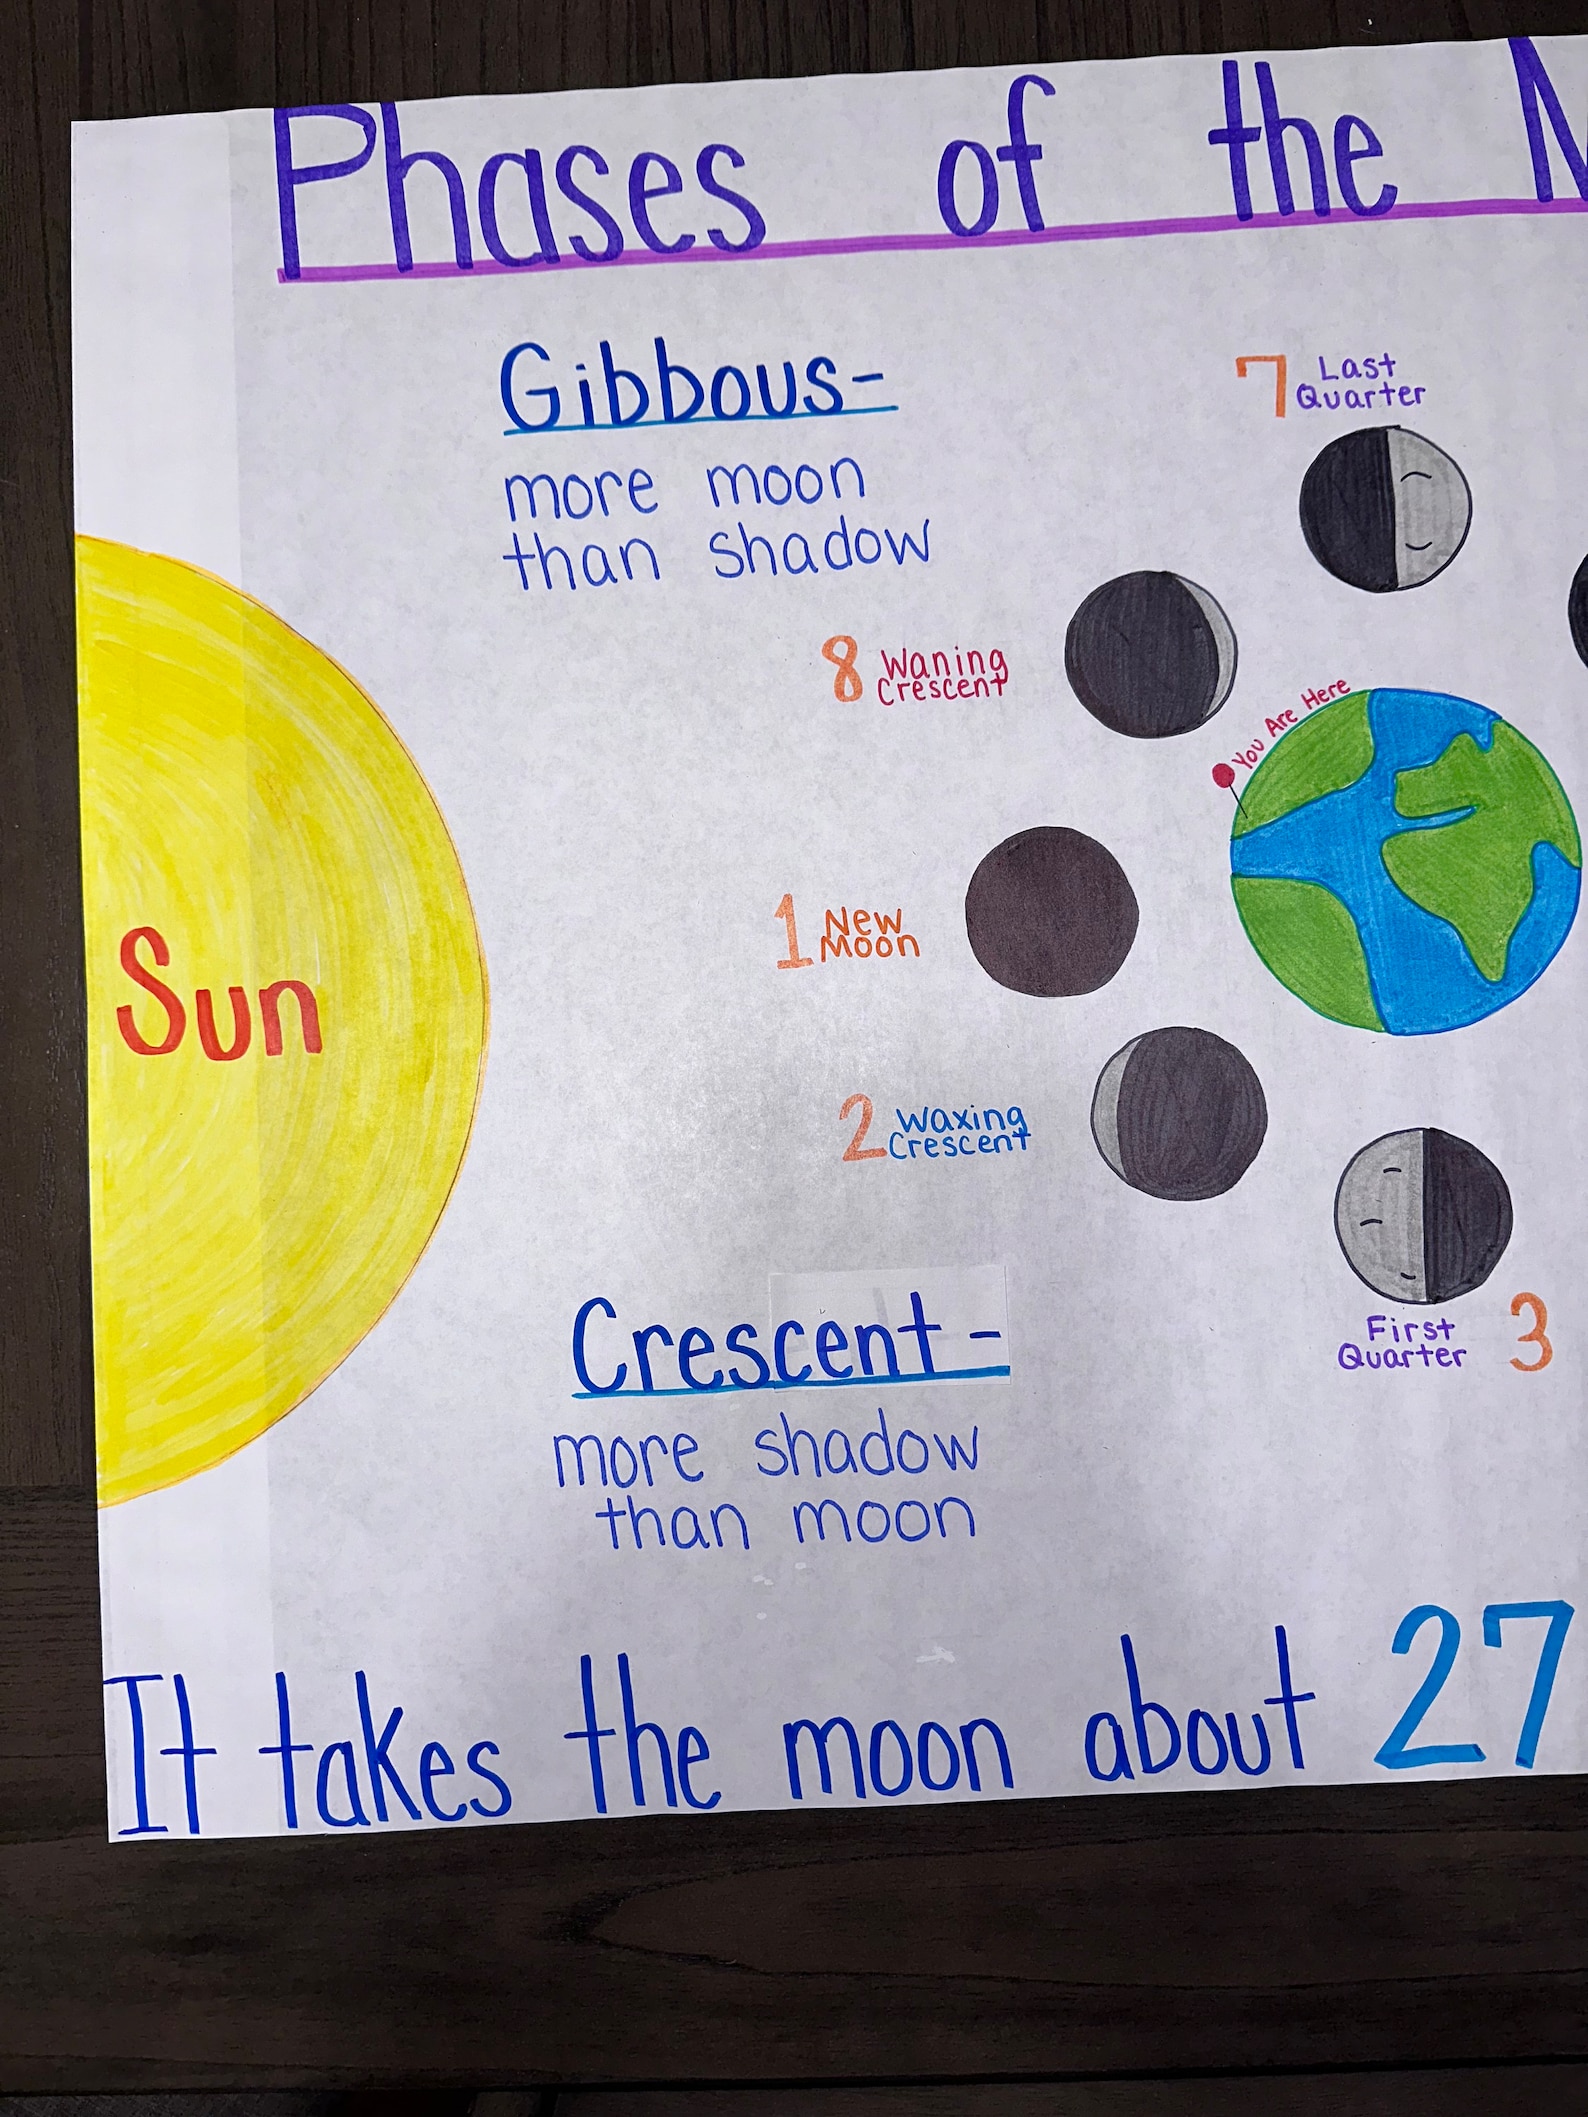 Phases of the
Gibbous-
more moon
than shadow
7 Last
Quarter
8 Waning
Crescent
You Are Here
Sun
1 New
Moon
2 Waxing
Crescent
First
Quarter 3
Crescent-
more shadow
than moon
It takes the moon about 27